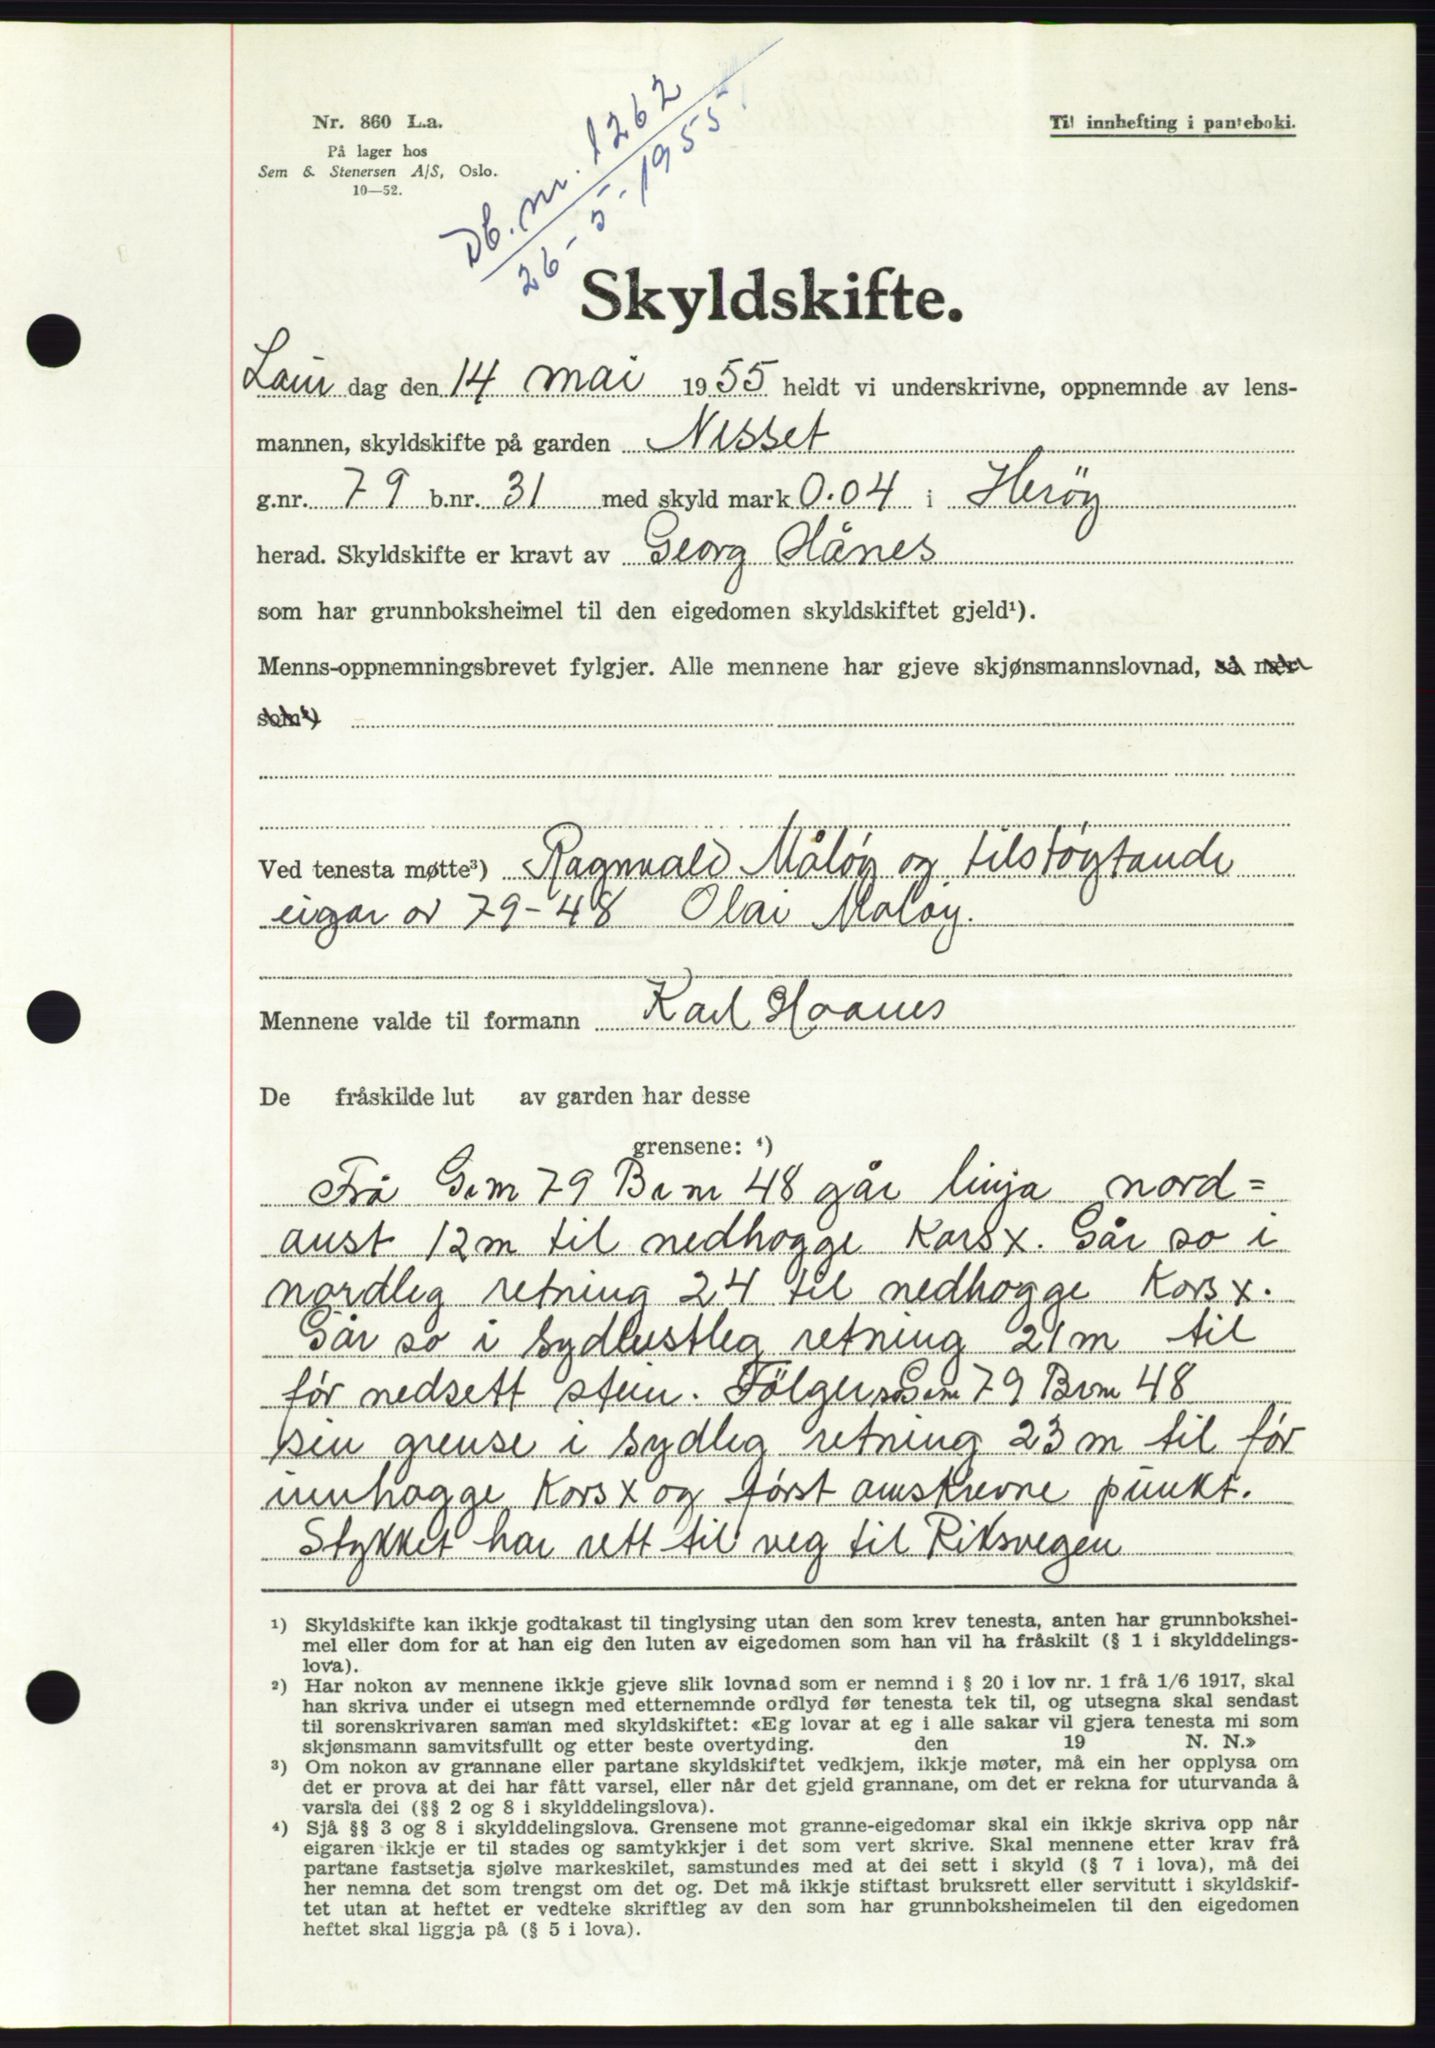 Nr. 860 L.a.
På lager hos
Sem & Stenersen A/S, Oslo.
10—52.
Til innhefting i panteboki.
Db. nr. 1262
26-5-1955
Skyldskifte.
Laur dag den 14 mai 1955 heldt vi underskrivne, oppnemnde av lens-
mannen, skyldskifte på garden Nesset
g.nr. 79 b.nr. 31 med skyld mark 0.04 i Herøy
herad. Skyldskifte er kravt av Georg Hånes
som har grunnboksheimel til den eigedomen skyldskiftet gjeld¹).
Menns-oppnemningsbrevet fylgjer. Alle mennene har gjeve skjønsmannslovnad, så nær
som²)
Ved tenesta møtte³) Ragnvald Måløy og tilstøytande
eigar av 79-48 Olai Måløy.
Mennene valde til formann Karl Haanes
De fråskilde lut av garden har desse
grensene: ⁴)
Frå Grn 79 Brn 48 går linja nord=
aust 12m til nedhogge Kors x. Går so i
nordleg retning 24 til nedhogge Kors x.
Går so i sydaustleg retning 21m til
før nedsett stein. Følger so Grn 79 Brn 48
sin grense i sydleg retning 23m til før
innhogge Kors x og først omskrevne punkt.
Stykket har rett til veg til Riksvegen
¹) Skyldskifte kan ikkje godtakast til tinglysing utan den som krev tenesta, anten har grunnbokshei-
mel eller dom for at han eig den luten av eigedomen som han vil ha fråskilt (§ 1 i skylddelings-
lova).
²) Har nokon av mennene ikkje gjeve slik lovnad som er nemnd i § 20 i lov nr. 1 frå 1/6 1917, skal
han skriva under ei utsegn med etternemnde ordlyd før tenesta tek til, og utsegna skal sendast
til sorenskrivaren saman med skyldskiftet: «Eg lovar at eg i alle sakar vil gjera tenesta mi som
skjønsmann samvitsfullt og etter beste overtyding. den 19 N. N.»
³) Om nokon av grannane eller partane skyldskiftet vedkjem, ikkje møter, må ein her opplysa om
det er prova at dei har fått varsel, eller når det gjeld grannane, om det er rekna for uturvanda å
varsla dei (§§ 2 og 8 i skylddelingslova).
⁴) Sjå §§ 3 og 8 i skylddelingslova. Grensene mot granne-eigedomar skal ein ikkje skriva opp når
eigaren ikkje er til stades og samtykkjer i det som vert skrive. Skal mennene etter krav frå
partane fastsetja sjølve markeskilet, samstundes med at dei sett i skyld (§ 7 i lova), må dei
her nemna det som trengst om det og. Det må ikkje stiftast bruksrett eller servitutt i skyldskif-
tet utan at heftet er vedteke skriftleg av den som har grunnboksheimelen til den eigedomen
heftet skal liggja på (§ 5 i lova).